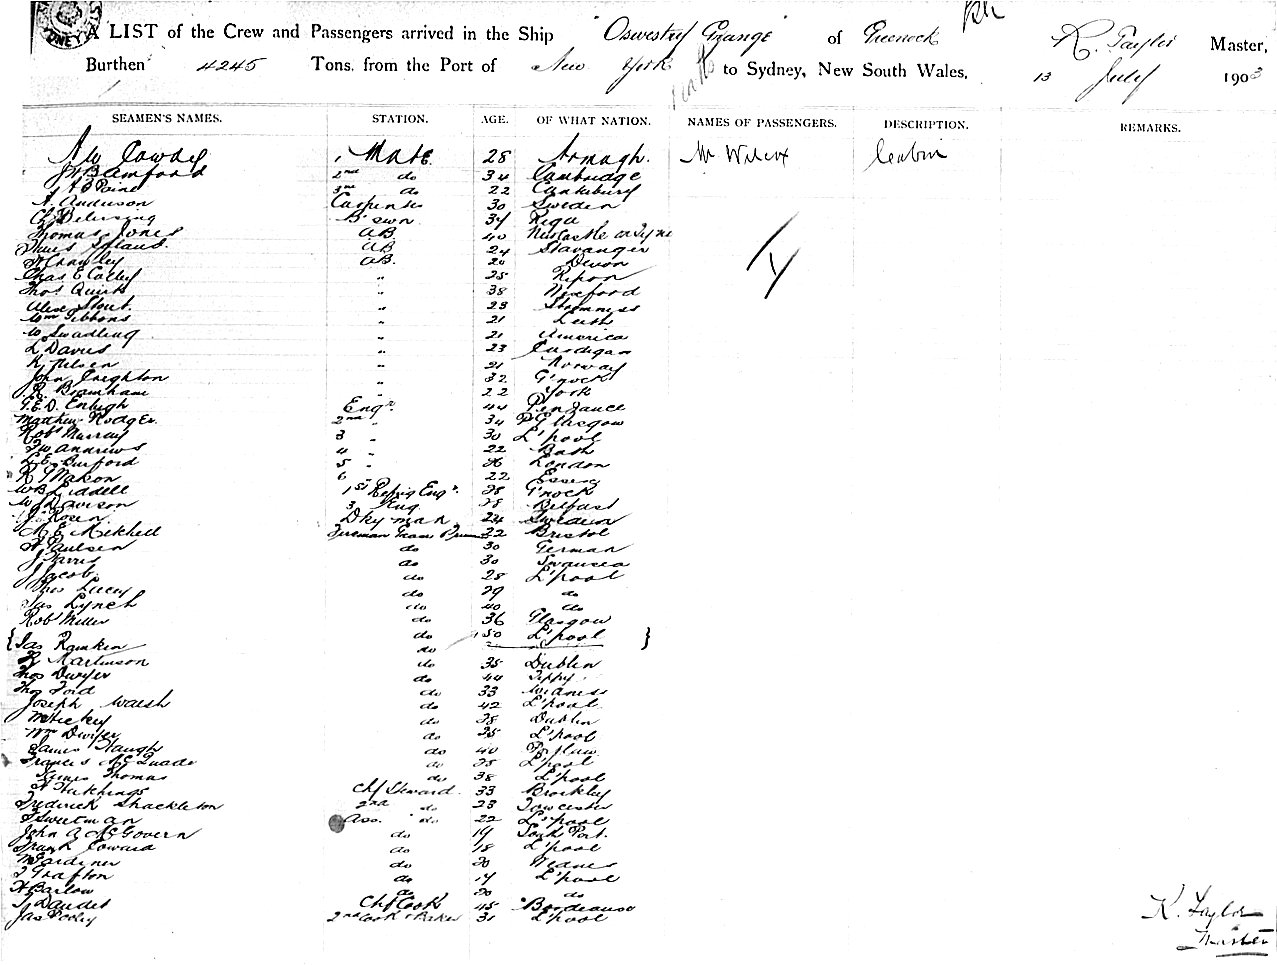 A LIST of the Crew and Passengers arrived in the Ship "Oswestry Grange" of Greenock K. Taylor Master,
Burthen 4245 Tons, from the Port of New York to Sydney, New South Wales, 13 July 1903
SEAMEN'S NAMES. STATION. AGE. OF WHAT NATION. NAMES OF PASSENGERS. DESCRIPTION. REMARKS.
Cowdy 1 Mate 28 Armagh. Mr Wilcox Cabin
Bamford 2nd do 34 Cambridge
Paine 3rd do 22 Canterbury
A. Anderson Carpenter 30 Sweden
B'swn 34 Riga
Thomas Jones AB. 40 Newcastle on Tyne
AB 24 Stavanger
Crawley AB. 20 Devon
Chas E Catley " 25 Ripon
Thos Quirk " 38 Wexford
Alex Stout. " 23 Stromness
Wm Gibbons " 21 Leith
W Swadling " 21 America
L Davies " 23 Cardigan
K Nilsen " 21 Norway
John Creighton " 32 G'nock
Bramham " 22 York
G.E.D. English Engr. 44 Penzance
Matthew Rodger 2nd " 34 P. Glasgow
Robt Murray 3 " 30 L'pool
Andrews 4 " 22 Bath
Burford 5 " London
Makon 6 " 22 Essex
W B Liddell 1st Refrig Engr. 28 G'nock
W J Davison 3 Eng 28 Belfast
J. Rosen Dky man 24 Sweden
M E Mitchell Fireman 22 Bristol
Paulsen do 30 German
J Harris do 30 Swansea
J Jacob. do 28 L'pool
Thos Lucey do 29 do
Jas Lynch do 40 do
Robt Miller do 36 Glasgow
{ Jas Rankin do 50 L'pool }
do
Martinson do 35 Dublin
Thos Dwyer do 44 Tippy
Thos Ford do 33 Widness
Joseph Walsh do 42 L'pool
M Hickey do 28 Dublin
Wm Dwyer do 25 L'pool
James Waugh do 40 Portlaw
Francis McQuade do 25 L'pool
James Thomas do 38 L'pool
Hutchings Chf Steward. 33 Brockley
Frederick Shackleton 2nd do 23 Towcester
Sweetman Ass. do 22 L'pool
John A McGovern do 19 South Port.
Frank Coward do 18 L'pool
Gardiner do 20 Widnes
Grafton do 17 L'pool
H Barlow do 20 do
Daudet Chf Cook 45 Bordeaux
Jas Pooley 2nd Cook & Baker 31 L'pool
K. Taylor
Master